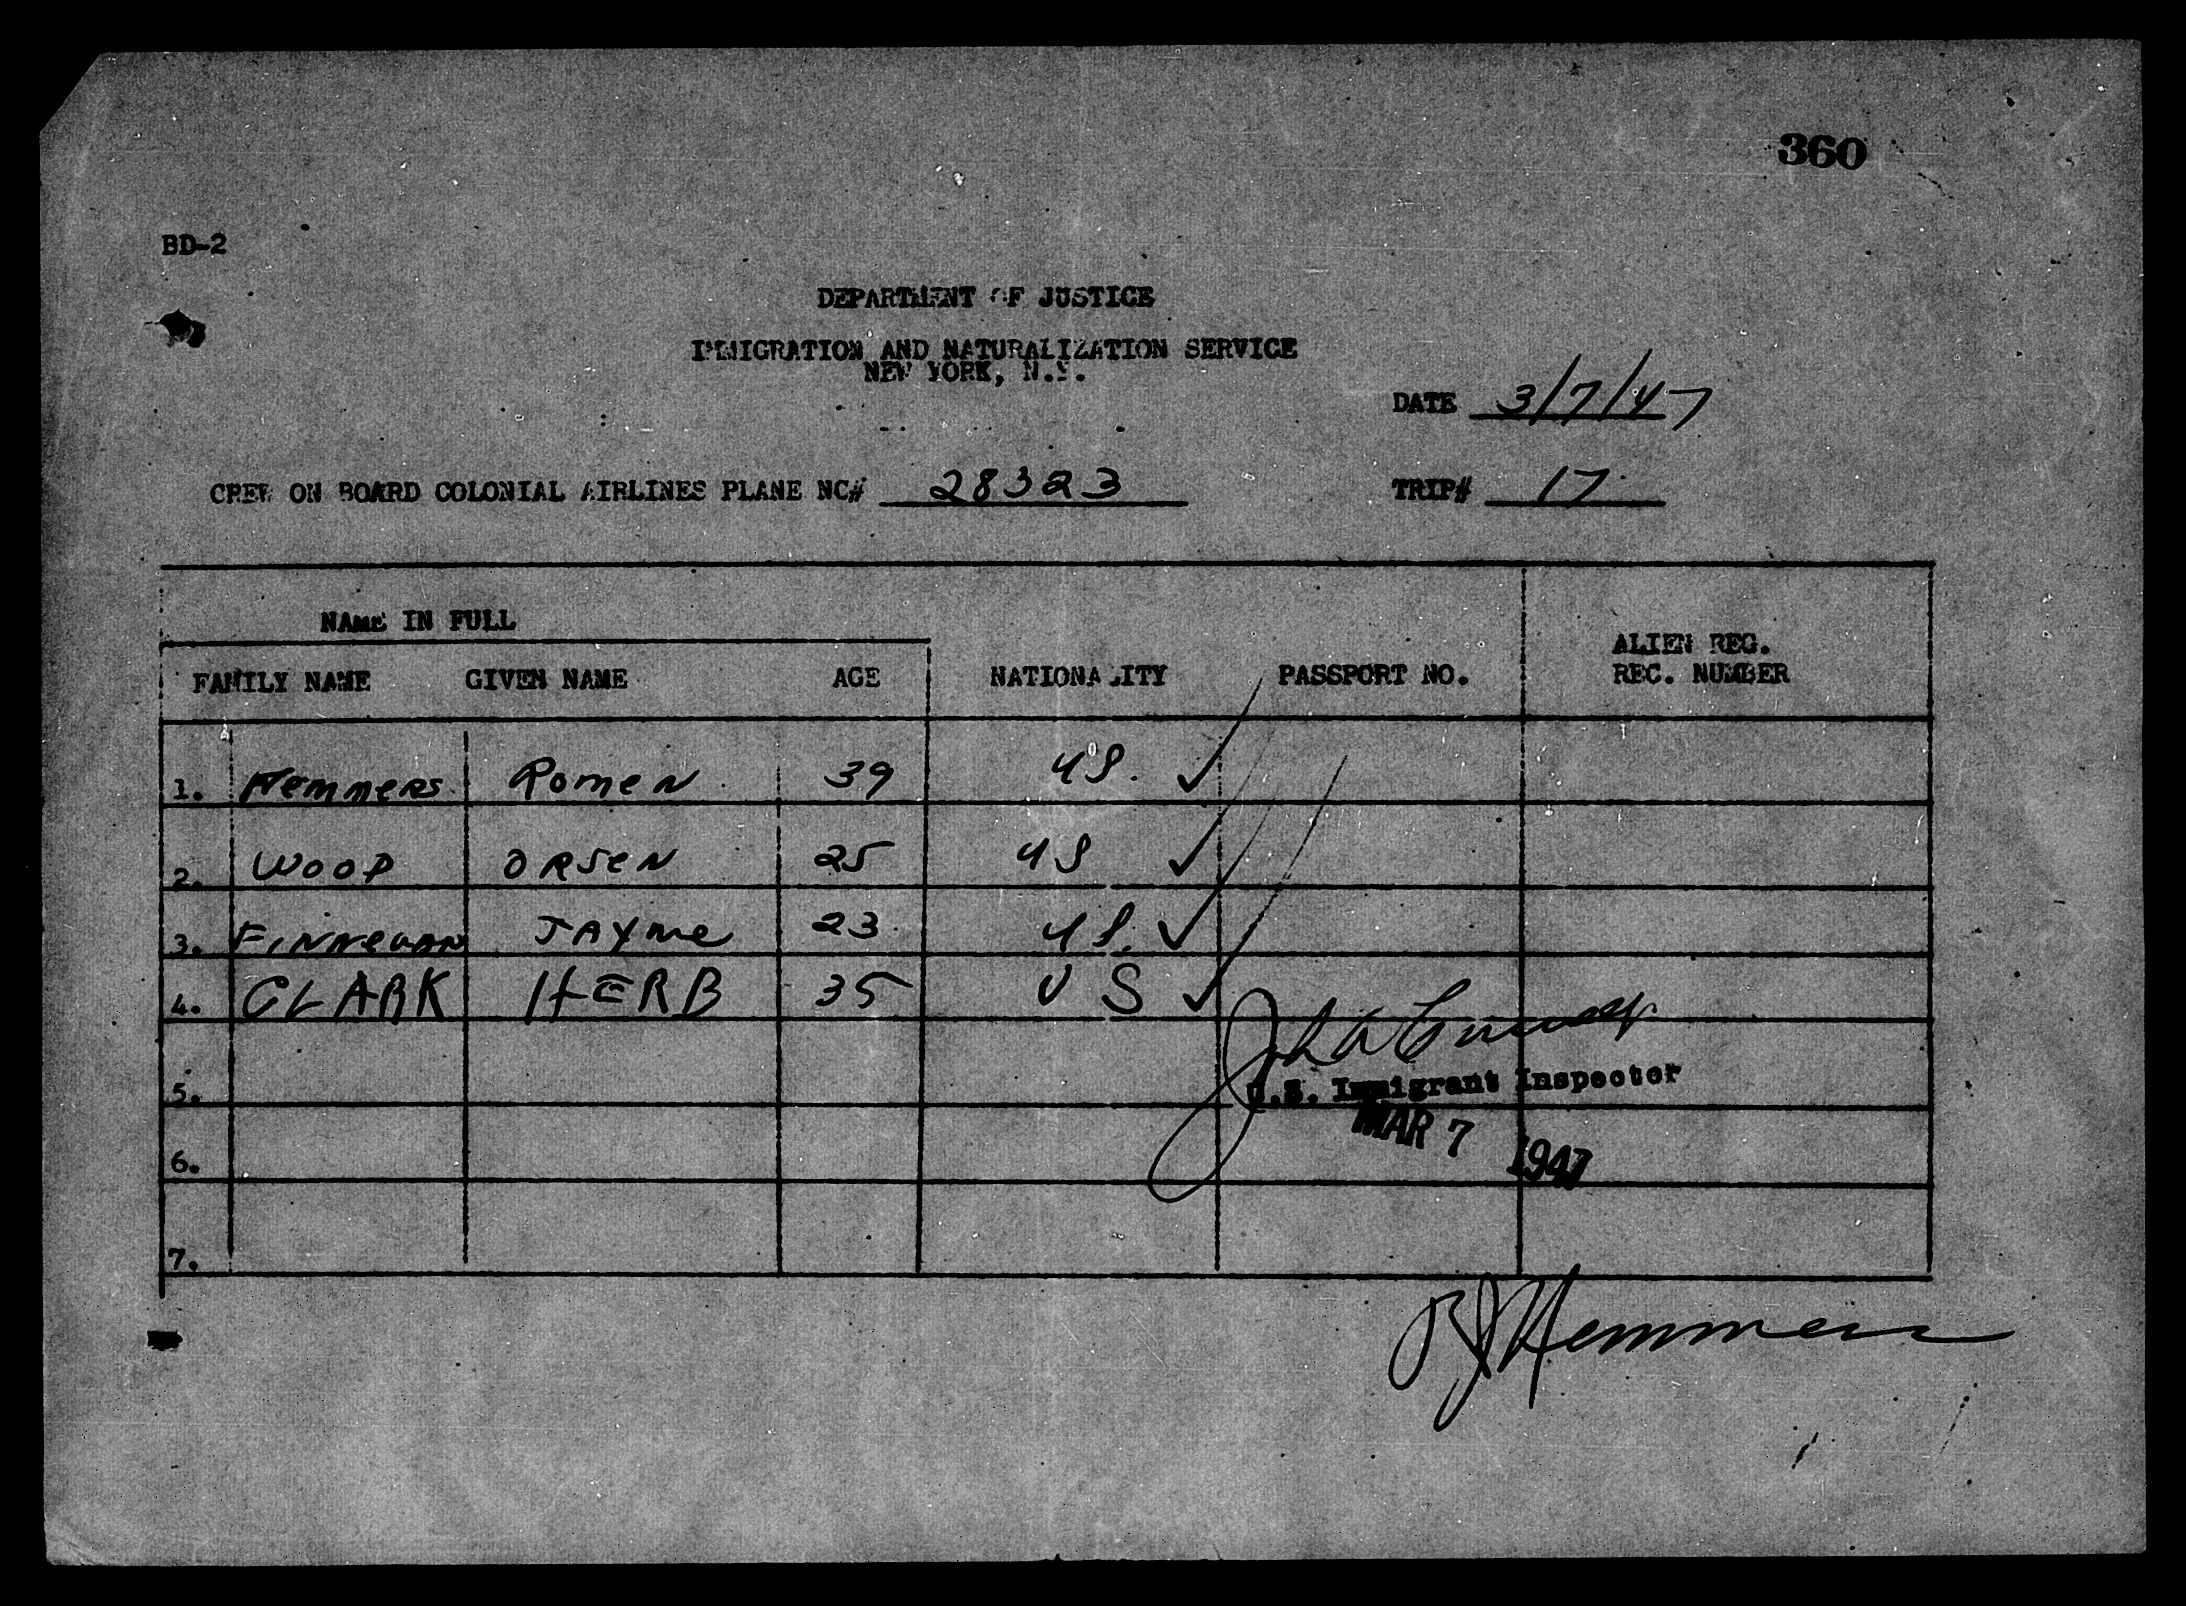 360
BD-2
DEPARTMENT OF JUSTICE
IMMIGRATION AND NATURALIZATION SERVICE
NEW YORK, N.Y.
DATE 3/7/47
CREW ON BOARD COLONIAL AIRLINES PLANE NC# 28323 TRIP# 17
NAME IN FULL
FAMILY NAME GIVEN NAME AGE NATIONALITY PASSPORT NO. ALIEN REG. REC. NUMBER
1. Hemmers Romen 39 US. ✓
2. WOOD ORSEN 25 US ✓
3. FINNEGAN JAYME 23 US. ✓
4. CLARK HERB 35 US ✓
U.S. Immigrant Inspector
5.
MAR 7 1947
6.
7.
RJ Hemmers